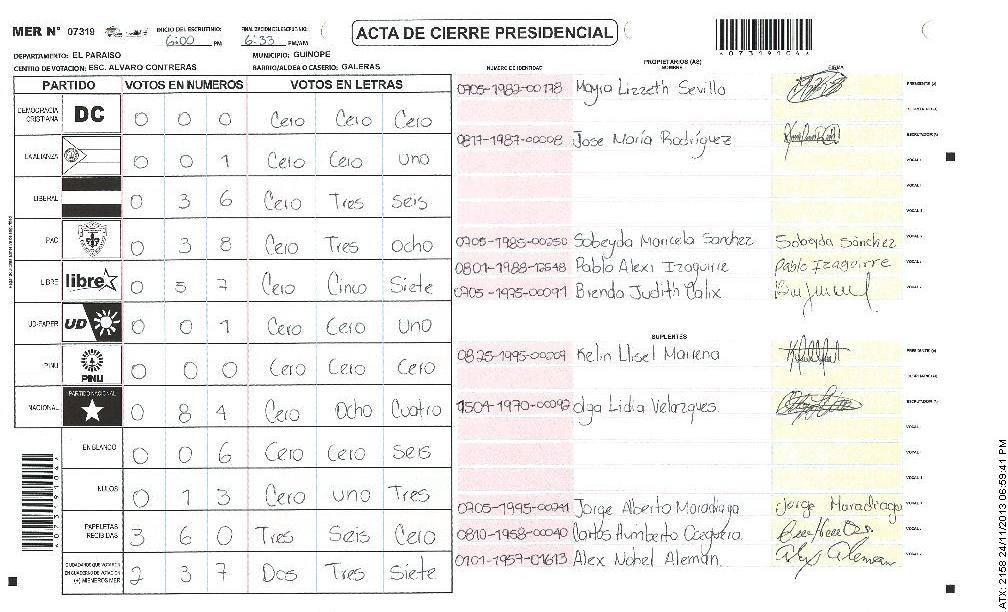 MER N° 07319
INICIO DEL ESCRUTINIO: 6:00 PM
FINALIZACION DE ESCRUTINIO: 6:33 PM/AM
ACTA DE CIERRE PRESIDENCIAL
*0731910A*
DEPARTAMENTO: EL PARAISO
MUNICIPIO: GUINOPE
CENTRO DE VOTACION: ESC. ALVARO CONTRERAS
BARRIO/ALDEA O CASERIO: GALERAS
PARTIDO VOTOS EN NUMEROS VOTOS EN LETRAS
DEMOCRACIA CRISTIANA DC 0 0 0 Cero Cero Cero
LA ALIANZA 0 0 1 Cero Cero uno
LIBERAL 0 3 6 Cero Tres seis
PAC 0 3 8 Cero Tres ocho
LIBRE libre 0 5 7 Cero Cinco Siete
UD-FAPER UD 0 0 1 Cero Cero uno
PINU PINU 0 0 0 Cero Cero Cero
NACIONAL PARTIDO NACIONAL 0 8 4 Cero ocho Cuatro
EN BLANCO 0 0 6 Cero Cero seis
NULOS 0 1 3 Cero uno Tres
PAPELETAS RECIBIDAS 3 6 0 Tres Seis Cero
CIUDADANOS QUE VOTARON EN CUADERNO DE VOTACION (+) MIEMBROS MER 2 3 7 Dos Tres Siete
NUMERO DE IDENTIDAD PROPIETARIOS (AS) NOMBRE FIRMA
0705-1982-00178 Mayra Lizzeth Sevilla PRESIDENTE (A)
SECRETARIO (A)
0817-1987-00008 Jose María Rodríguez ESCRUTADOR (A)
VOCAL
VOCAL
VOCAL
0705-1985-00250 Sobeyda Maricela Sanchez Sobeyda Sánchez VOCAL
0801-1988-12548 Pablo Alexi Izaguirre Pablo Izaguirre VOCAL
0705-1975-00091 Brenda Judith Calix VOCAL
SUPLENTES
0825-1995-00209 Kelin Llisel Mairena PRESIDENTE (A)
SECRETARIO (A)
1504-1970-00092 olga Lidia Velazques ESCRUTADOR (A)
VOCAL
VOCAL
VOCAL
0705-1995-00241 Jorge Alberto Maradiaga Jorge Maradiaga VOCAL
0810-1958-00040 Carlos Humberto VOCAL
0701-1957-01613 Alex Nohel Alemán Alex Aleman VOCAL
ATX: 2158 24/11/2013 06:59:41 PM